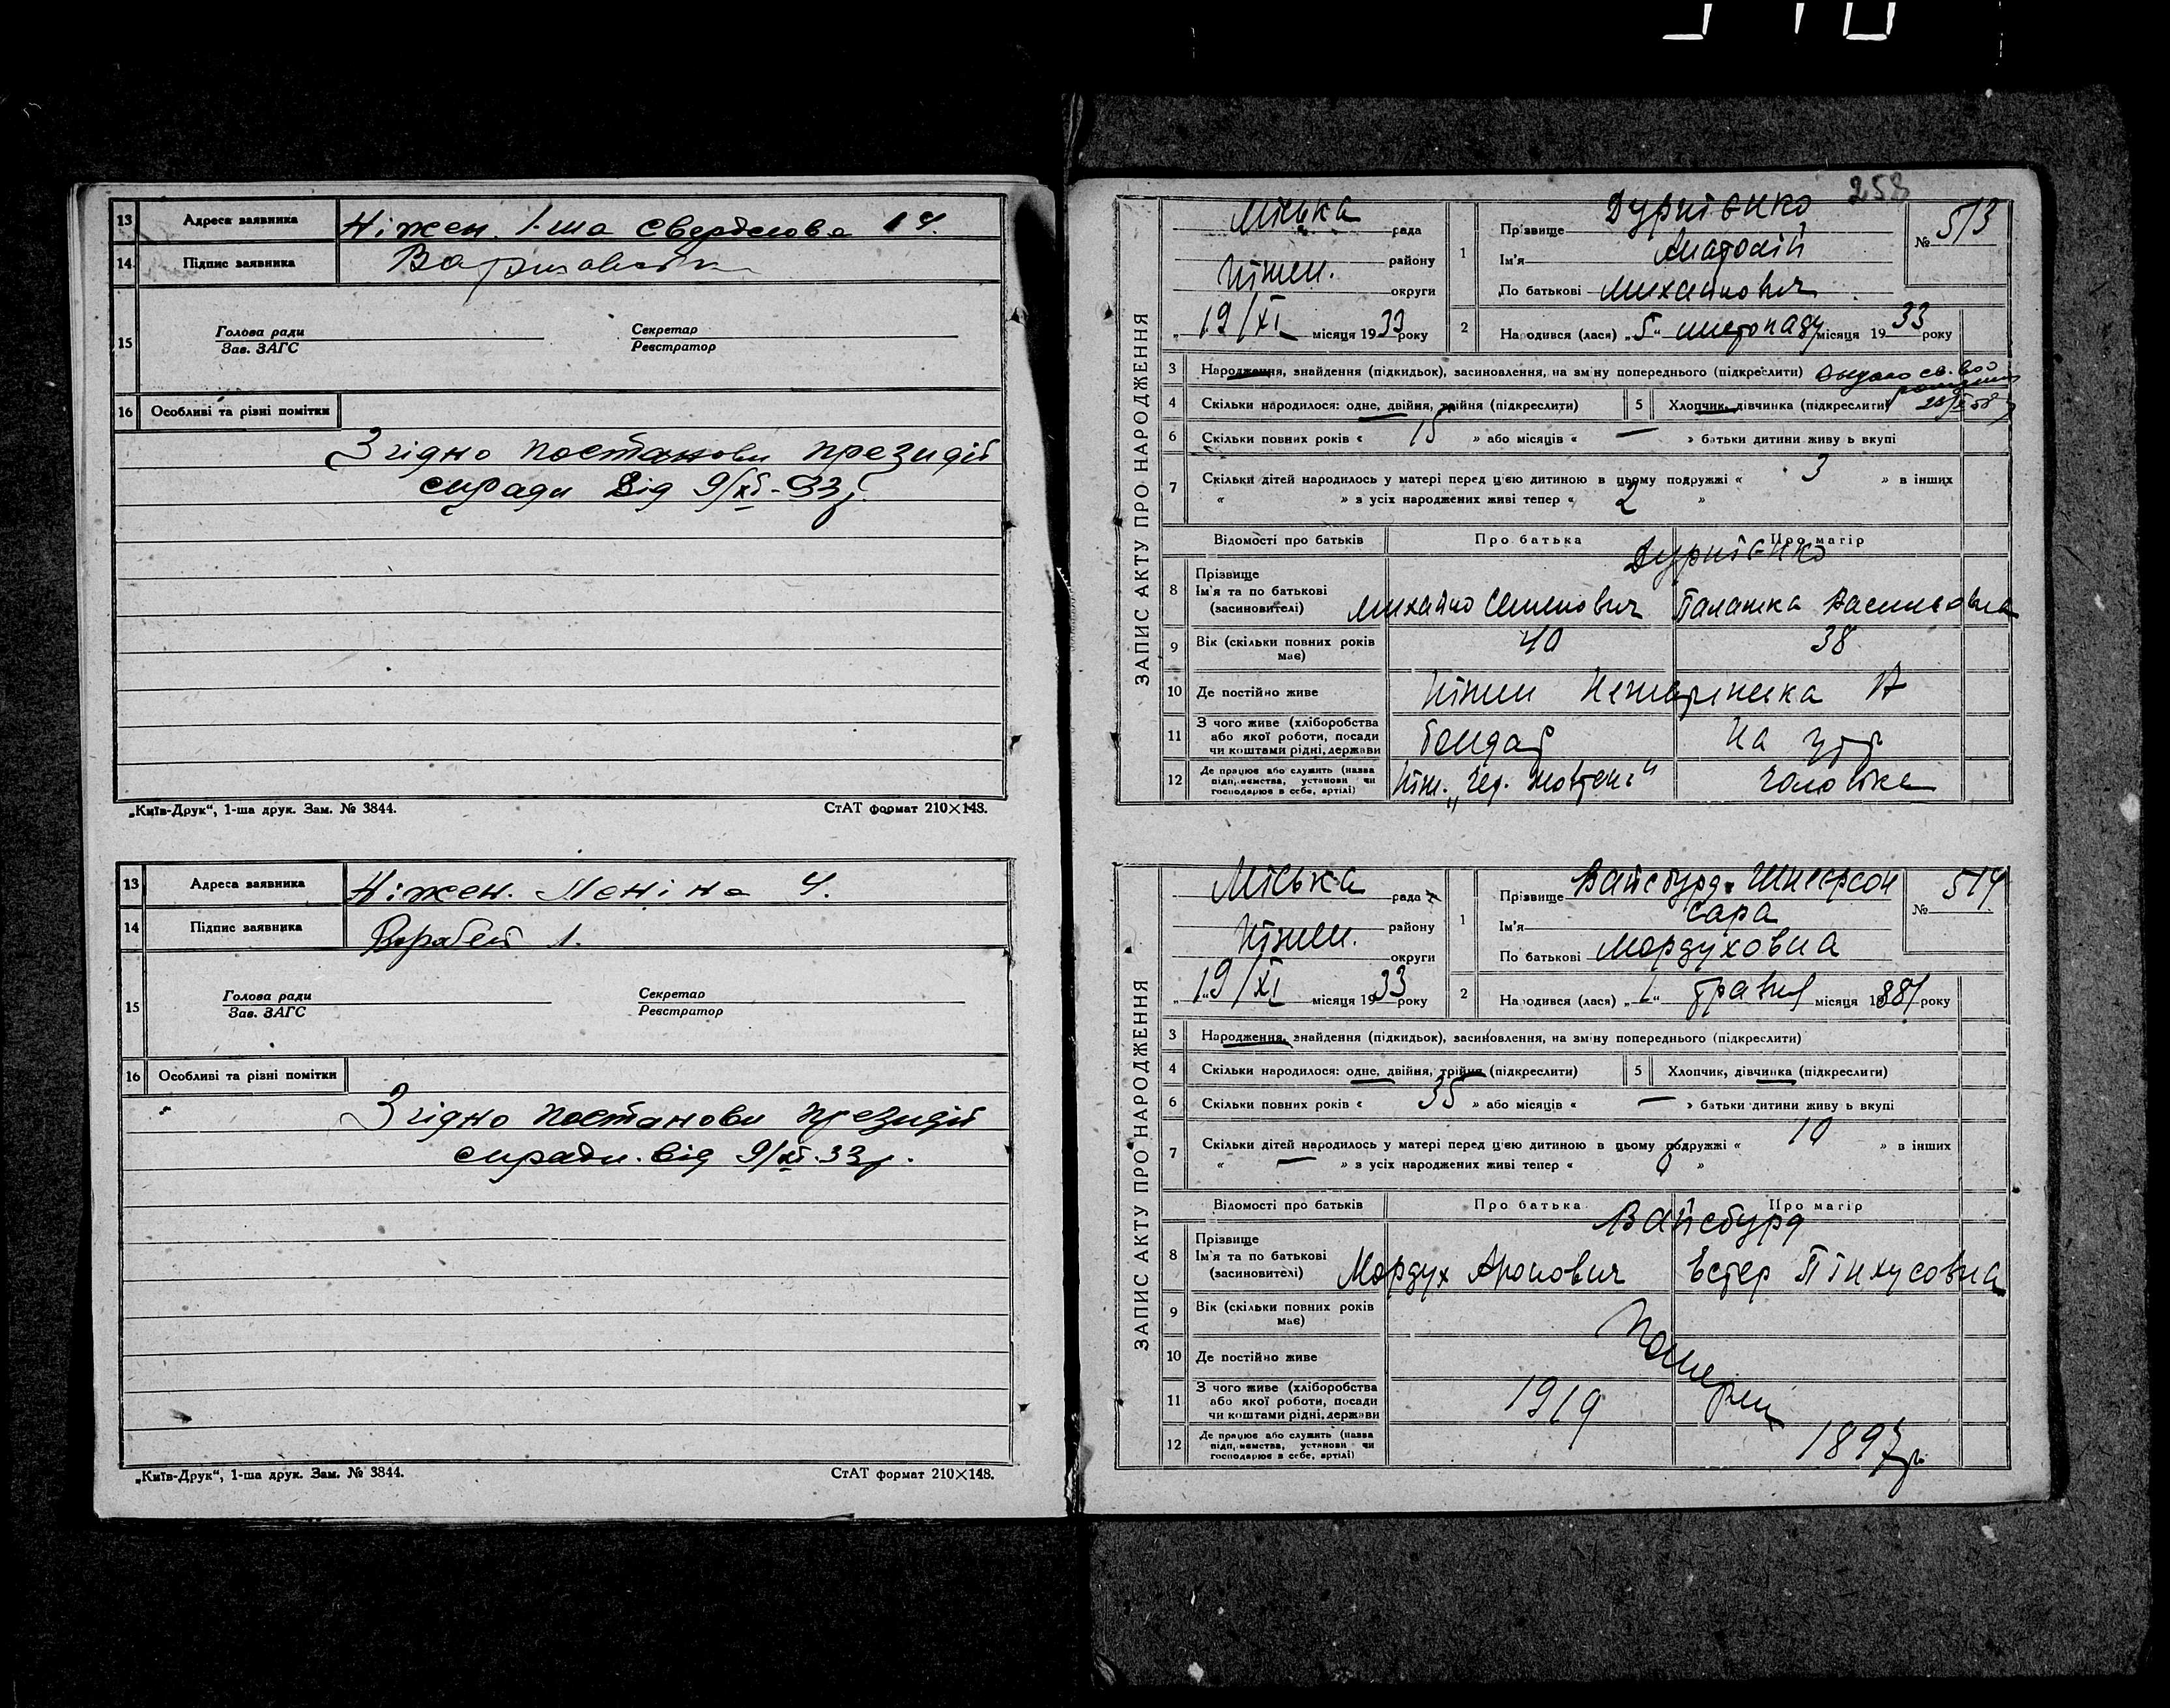 13 Адреса заявника Ніжен. 1-ша Свердлова 14.
14 Підпис заявника
15 Голова ради Секретар
Зав. ЗАГС Реєстратор
16 Особливі та різні помітки
Згідно постанови президії
с/ради від 9/XI-33р.
„Київ-Друк“, 1-ша друк. Зам. № 3844. СтАТ формат 210×148.
13 Адреса заявника Ніжен. Леніна 4.
14 Підпис заявника
15 Голова ради Секретар
Зав. ЗАГС Реєстратор
16 Особливі та різні помітки
Згідно постанови президії
с/ради від 9/XI.33р.
„Київ-Друк“, 1-ша друк. Зам. № 3844. СтАТ формат 210×148.
258
ЗАПИС АКТУ ПРО НАРОДЖЕННЯ
Міська рада
Ніжен. району
округи
„19/XI місяця 1933 року
1 Прізвище Дурнієнко
Ім'я Анатолій
По батькові Михайлович
№ 513
2 Народився (лася) „5“ листопаду місяця 1933 року
3 Народження, знайдення (підкидьок), засиновлення, на зміну попереднього (підкреслити)
4 Скільки народилося: одне, двійня, трійня (підкреслити) 5 Хлопчик, дівчинка (підкреслити)
6 Скільки повних років « 15 » або місяців « — » батьки дитини живуть вкупі
7 Скільки дітей народилось у матері перед цією дитиною в цьому подружжі « 3 » в інших
« » з усіх народжених живі тепер « 2 »
Відомості про батьків Про батька Про матір
Дурнієнко
8 Прізвище
Ім'я та по батькові
(засиновителі) Михайло Семенович Палажка Васильовна
9 Вік (скільки повних років
має) 40 38
10 Де постійно живе Ніжен
11 З чого живе (хліборобства
або якої роботи, посади
чи коштами рідні, держави бондар На утр
12 Де працює або служить (назва
підприємства, установи чи
господарює в себе, артілі) Ніж. „Чер. жовтень“ чоловіка
ЗАПИС АКТУ ПРО НАРОДЖЕННЯ
Міська рада
Ніжен. району
округи
„19/XI місяця 1933 року
1 Прізвище Вайсбурд-Шнеерсон
Ім'я Сара
По батькові Мордуховна
№ 514
2 Народився (лася) „1“ травня місяця 1887 року
3 Народження, знайдення (підкидьок), засиновлення, на зміну попереднього (підкреслити)
4 Скільки народилося: одне, двійня, трійня (підкреслити) 5 Хлопчик, дівчинка (підкреслити)
6 Скільки повних років « 35 » або місяців « — » батьки дитини живуть вкупі
7 Скільки дітей народилось у матері перед цією дитиною в цьому подружжі « 10 » в інших
« — » з усіх народжених живі тепер « »
Відомості про батьків Про батька Про матір
Вайсбурд
8 Прізвище
Ім'я та по батькові
(засиновителі) Мордух Аронович Естер Пінхусовна
9 Вік (скільки повних років
має)
10 Де постійно живе Померли
11 З чого живе (хліборобства
або якої роботи, посади
чи коштами рідні, держави 1919
12 Де працює або служить (назва
підприємства, установи чи
господарює в себе, артілі) 1897р.